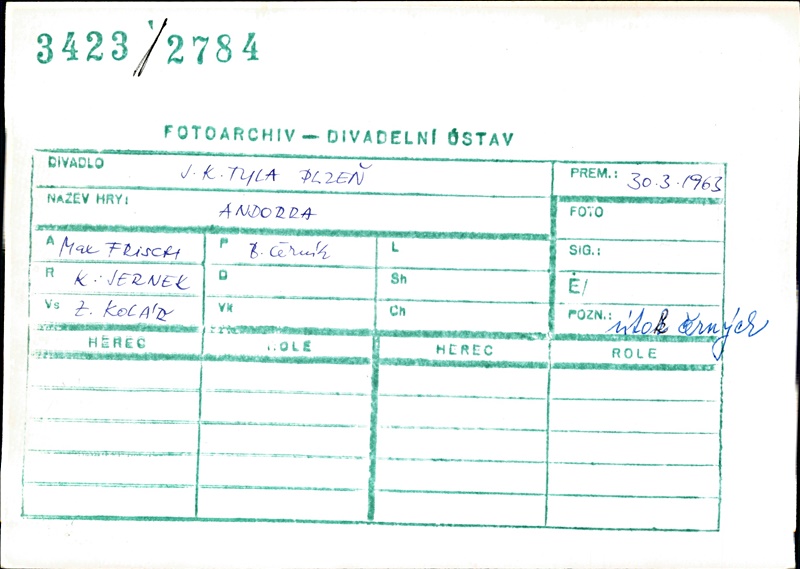 3423/2784
FOTOARCHIV — DIVADELNÍ ÚSTAV
DIVADLO J. K. TYLA PLZEŇ PREM.: 30.3.1963
NAZEV HRY: ANDORRA FOTO
A Max FRISCH P B. Černík L SIG.:
R K. JERNEK D Sh Ė/
Vs Z. KOLÁŘ Vk Ch POZN.: útok černých
HEREC ROLE HEREC ROLE